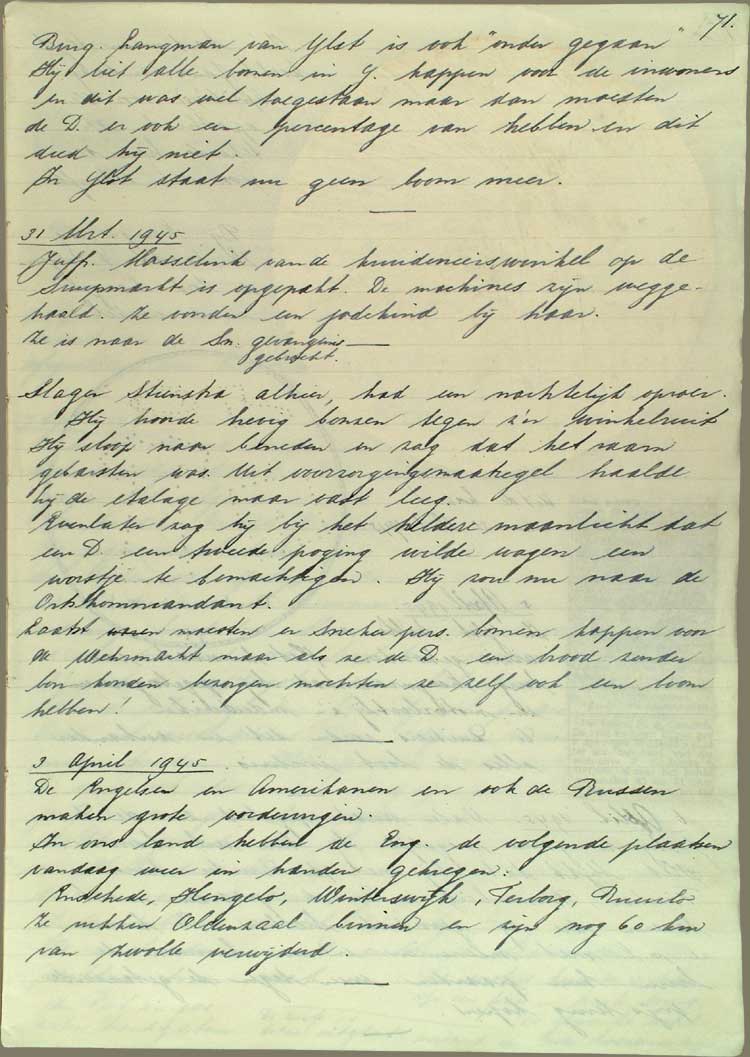 71.
Burg. Langman van Ylst is ook "onder gegaan"
Hij liet alle bomen in Y. kappen voor de inwoners
en dit was wel toegestaan maar dan moesten
de D. er ook een percentage van hebben en dit
deed hij niet.
In Ylst staat nu geen boom meer.
31 Mrt. 1945
Juffr. Hasselink van de kruidenierswinkel op de
Suupmarkt is opgepakt. De machines zijn wegge-
haald. Ze vonden een jodekind bij haar.
Ze is naar de Sn. gevangenis
gebracht.
Slager Stienstra alhier, had een nachtelijk oproer.
Hij hoorde hevig bonzen tegen z'n winkelruit
Hij sloop naar beneden en zag dat het raam
gebarsten was. Uit voorzorgingsmaatregel haalde
hij de etalage maar vast leeg.
Evenlater zag hij bij het heldere maanlicht dat
een D. een tweede poging wilde wagen een
worstje te bemachtigen. Hij zou nu naar de
Ortskommandant.
Laatst moesten er Sneeker pers. bomen kappen voor
de Wehrmacht maar als ze de D. een brood zonder
bon konden bezorgen mochten ze zelf ook een boom
hebben!
3 April 1945.
De Engelsen en Amerikanen en ook de Russen
maken grote vorderingen.
In ons land hebben de Eng. de volgende plaatsen
vandaag weer in handen gekregen:
Enschede, Hengelo, Winterswijk, Terborg, Ruurlo
Ze rukken Oldenzaal binnen en zijn nog 60 km
van Zwolle verwijderd.